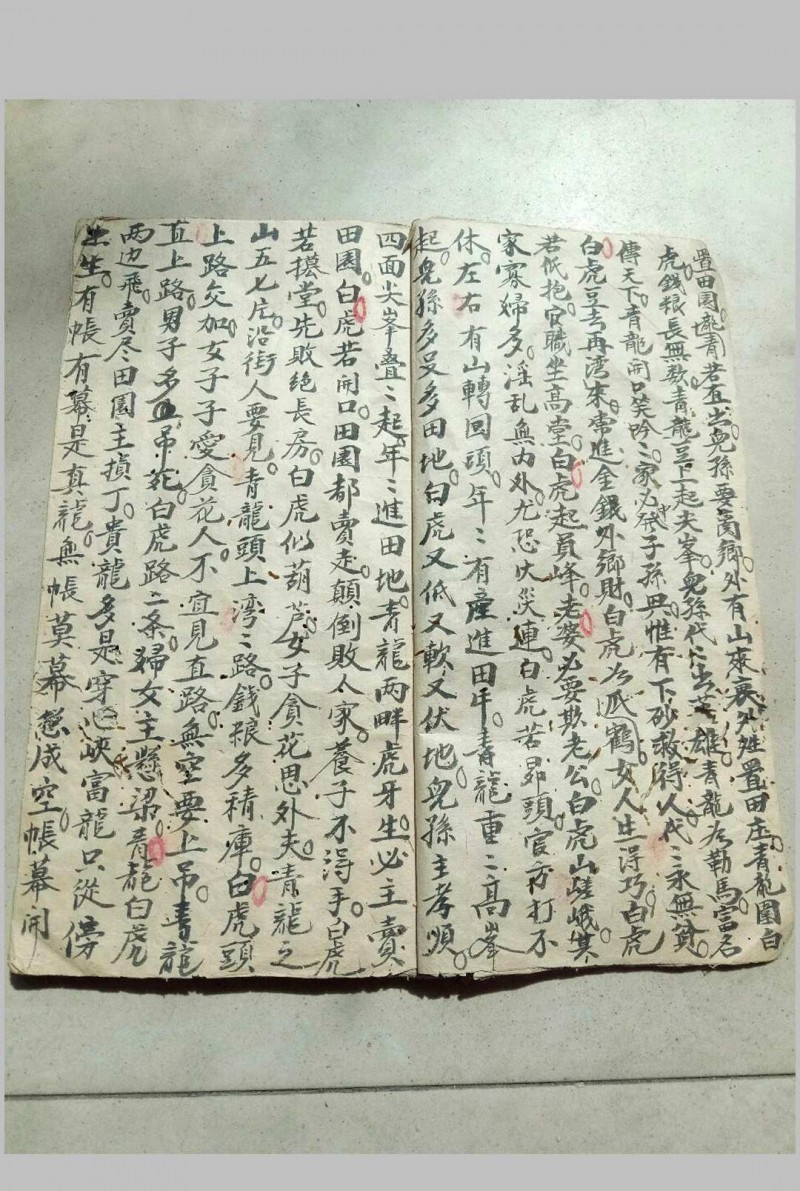 置田園。龍青若直出兒孫要离鄉。外有山來裹外姓置田庄。青龍圍白
虎。錢粮長無数。青龍并上起尖峯。兒孫代〻出英雄。青龍为勒馬。富名
傳天下。青龍開口笑吟〻。家必發子孫興。惟有下砂救得人。代〻永無貧。
白虎去再湾來。常進金銀外鄉財。白虎为瓜鶴。女人生得巧。白虎
若低抱。官職坐高堂。白虎起員峰。老婆必要欺老公。白虎山嵯峨。其
家寡婦多。淫乱無内外。尤恐火災連。白虎若昂頭。官府打不
休。左右有山轉回頭。年〻有産進田牛。青龍重〻高峯
起。兒孫多又多田地。白虎又低又軟又伏地。兒孫主孝順。
四面尖峯疊〻起。年〻進田地。青龍两畔虎牙生。必主賣
田園。白虎若開口。田園都賣走。顛倒敗人家。養子不得手。白虎
若搥堂。先敗絕長房。白虎似葫芦。女子貪花思外夫。青龍之
山五七片。沿街人要見。青龍頭上湾〻路。錢粮多積庫。白虎頭
上路交加。女子子愛貪花。人不宜見直路。無空要上吊。青龍
直上路。男子多血吊死。白虎路二条。婦女主懸梁。青龍白虎
两边飛。賣尽田園主損丁。貴龍多是穿心峽。富龍只從傍
生。有帳有幕是真龍。無帳莫幕総成空。帳幕開